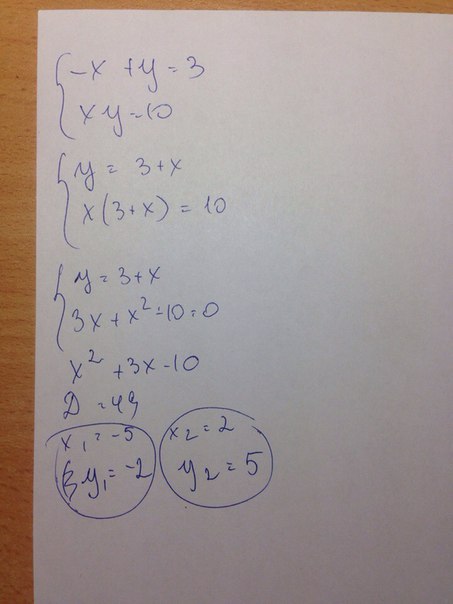 -x + y = 3
xy = 10
y = 3 + x
x(3 + x) = 10
y = 3 + x
3x + x² - 10 = 0
x² + 3x - 10
D = 49
x₁ = -5 x₂ = 2
y₁ = -2 y₂ = 5